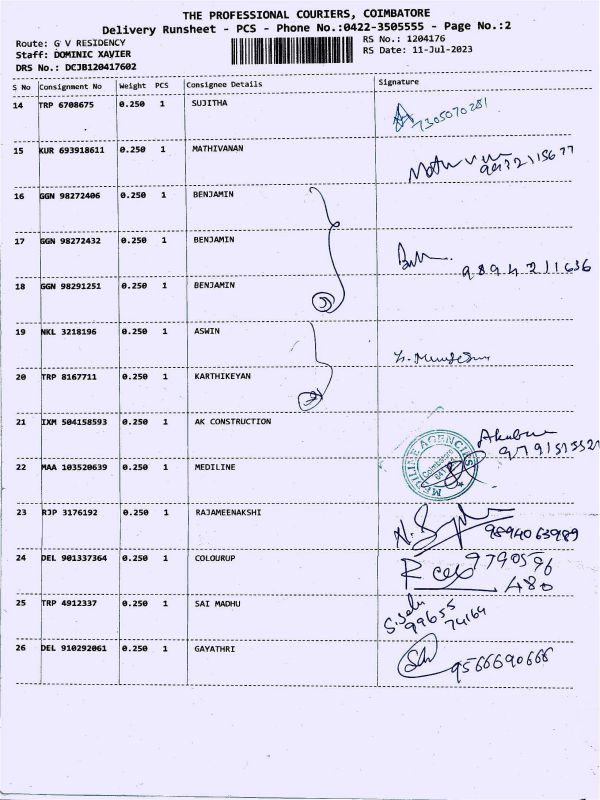 THE PROFESSIONAL COURIERS, COIMBATORE
Delivery Runsheet - PCS - Phone No.:0422-3505555 - Page No.:2
Route: G V RESIDENCY
RS No.: 1204176
Staff: DOMINIC XAVIER
RS Date: 11-Jul-2023
DRS No.: DCJB120417602
S No Consignment No Weight PCS Consignee Details Signature
14 TRP 6708675 0.250 1 SUJITHA
7305070281
15 KUR 693918611 0.250 1 MATHIVANAN
16 GGN 98272406 0.250 1 BENJAMIN
17 GGN 98272432 0.250 1 BENJAMIN
9894211636
18 GGN 98291251 0.250 1 BENJAMIN
19 NKL 3218196 0.250 1 ASWIN
20 TRP 8167711 0.250 1 KARTHIKEYAN
21 IXM 504158593 0.250 1 AK CONSTRUCTION
22 MAA 103520639 0.250 1 MEDILINE
MEDILINE AGENCIES
Coimbatore
23 RJP 3176192 0.250 1 RAJAMEENAKSHI
9894063989
24 DEL 901337364 0.250 1 COLOURUP
9790596
480
25 TRP 4912337 0.250 1 SAI MADHU
99655
74164
26 DEL 910292061 0.250 1 GAYATHRI
9566690666